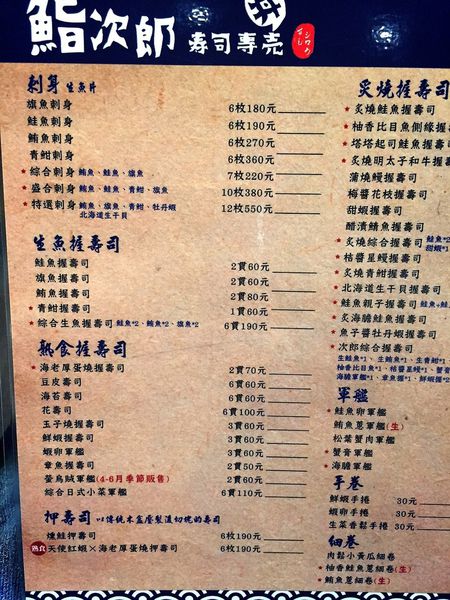 鮨次郎 寿司専売
刺身 生魚片
旗魚刺身 6枚180元
鮭魚刺身 6枚190元
鮪魚刺身 6枚270元
青魽刺身 6枚360元
★綜合刺身 鮪魚、鮭魚、旗魚 7枚220元
★盛合刺身 鮪魚、鮭魚、青魽、旗魚 10枚380元
★特選刺身 鮪魚、旗魚、青魽、牡丹蝦 12枚550元
北海道生干貝
生魚握壽司
鮭魚握壽司 2貫60元
旗魚握壽司 2貫60元
鮪魚握壽司 2貫80元
★青魽握壽司 1貫60元
★綜合生魚握壽司 鮭魚*2、鮪魚*2、旗魚*2 6貫190元
熟食握壽司
★海老厚蛋燒握壽司 2貫70元
豆皮壽司 6貫60元
海苔壽司 6貫60元
花壽司 6貫100元
玉子燒握壽司 3貫60元
鮮蝦握壽司 3貫60元
蝦卵軍艦 3貫60元
章魚握壽司 2貫50元
螢烏賊軍艦(4-6月季節販售) 2貫60元
綜合日式小菜軍艦 6貫110元
押壽司 以傳統木盒壓製溫切塊的壽司
燻鮭押壽司 6枚190元
熟食 天使紅蝦×海老厚蛋燒押壽司 6枚190元
炙燒握壽司
★炙燒鮭魚握壽司
★柚香比目魚側緣握壽司
★塔塔起司鮭魚握壽司
★炙燒明太子和牛握壽司
蒲燒鰻握壽司
梅醬花枝握壽司
甜蝦握壽司
醋漬鯖魚握壽司
★炙燒綜合握壽司 鮭魚*2
甜蝦*1
桔醬星鰻握壽司
★炙燒青魽握壽司
★北海道生干貝握壽司
★鮭魚親子握壽司
★炙海膽鮭魚握壽司
★魚子醬牡丹蝦握壽司
★次郎綜合握壽司
生鮭魚*1、生鮪魚*1、生青魽*1
柚香比目魚*1、桔醬星鰻*1、蟹膏
海膽軍艦*1、章魚握*1、鮮蝦握*2
軍艦
★鮭魚卵軍艦
鮪魚蔥軍艦(生)
松葉蟹肉軍艦
★蟹膏軍艦
★海膽軍艦
手卷
鮮蝦手捲 30元
蝦卵手捲 30元
生菜香鬆手捲 30元
細卷
肉鬆小黃瓜細卷
★柚香鮭魚蔥細卷(生)
★鮪魚蔥細卷(生)